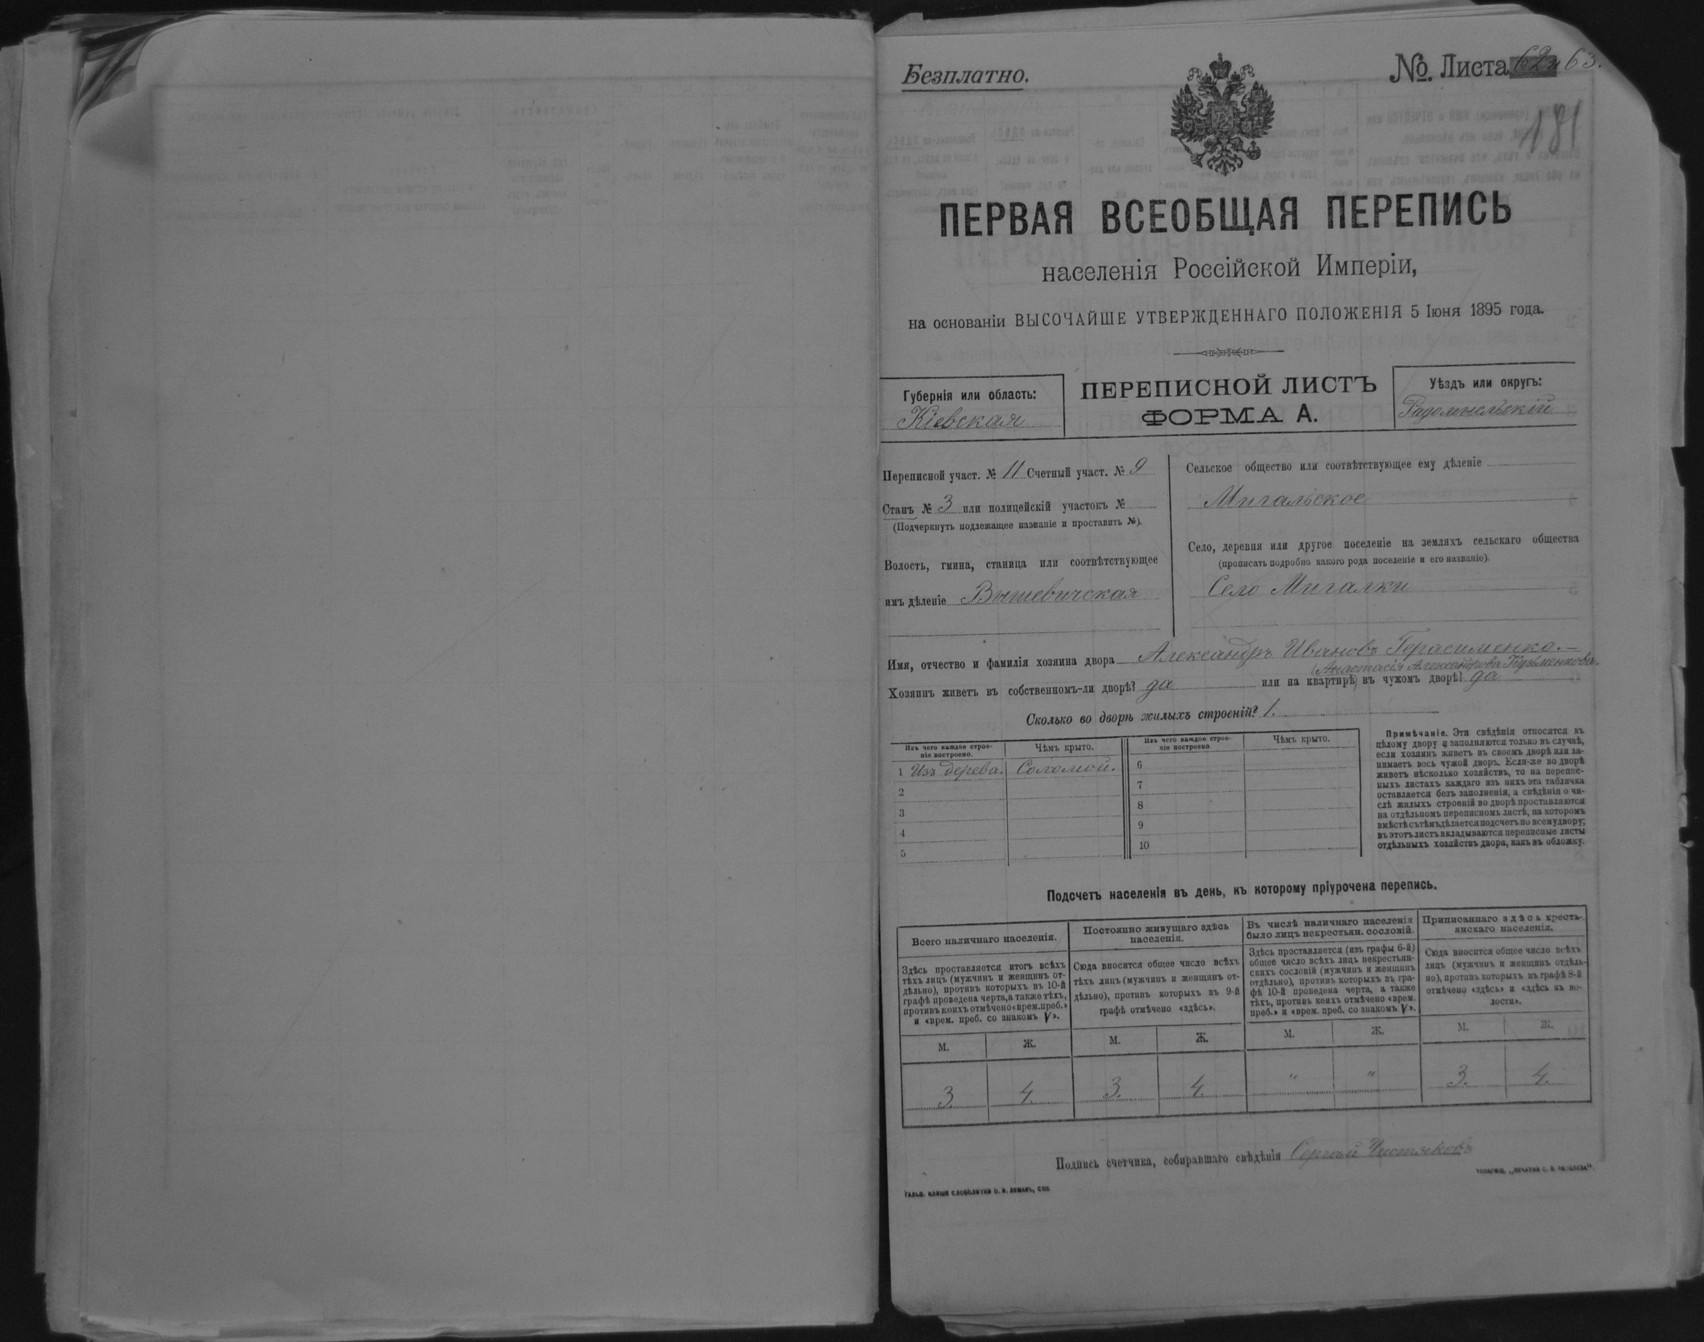 Безплатно.
№. Листа 62 и 63.
181
ПЕРВАЯ ВСЕОБЩАЯ ПЕРЕПИСЬ
населенія Россійской Имперіи,
на основаніи ВЫСОЧАЙШЕ УТВЕРЖДЕННАГО ПОЛОЖЕНІЯ 5 Іюня 1895 года.
Губернія или область:
Кіевская
ПЕРЕПИСНОЙ ЛИСТЪ
ФОРМА А.
Уѣздъ или округъ:
Радомысльскій
Переписной участ. № 11 Счетный участ. № 9
Станъ № 3 или полицейскій участокъ №
(Подчеркнуть подлежащее названіе и проставить №).
Волость, гмина, станица или соотвѣтствующее
имъ дѣленіе Вышевичская
Сельское общество или соотвѣтствующее ему дѣленіе
Мигальское
Село, деревня или другое поселеніе на земляхъ сельскаго общества
(прописать подробно какого рода поселеніе и его названіе).
Село Мигалки
Имя, отчество и фамилія хозяина двора Александръ Ивановъ Герасименко.
(Анастасія Александрова Кузьменкова.
Хозяинъ живетъ въ собственномъ-ли дворѣ? да или на квартирѣ, въ чужомъ дворѣ? да
Сколько во дворѣ жилыхъ строеній? 1.
Изъ чего каждое строе-
ніе построено.
Чѣмъ крыто.
Изъ чего каждое строе-
ніе построено
Чѣмъ крыто.
1 Изъ дерева. Соломой. 6
2 7
3 8
4 9
5 10
Примѣчаніе. Эти свѣдѣнія относятся къ
цѣлому двору и заполняются только въ случаѣ,
если хозяинъ живетъ въ своемъ дворѣ или за-
нимаетъ весь чужой дворъ. Если-же во дворѣ
живетъ нѣсколько хозяйствъ, то на перепис-
ныхъ листахъ каждаго изъ нихъ эта табличка
оставляется безъ заполненія, а свѣдѣнія о чи-
слѣ жилыхъ строеній во дворѣ проставляются
на отдѣльномъ переписномъ листѣ, на которомъ
вмѣстѣ съ тѣмъ дѣлается подсчетъ по всему двору;
въ этотъ листъ вкладываются переписные листы
отдѣльныхъ хозяйствъ двора, какъ въ обложку.
Подсчетъ населенія въ день, къ которому пріурочена перепись.
Всего наличнаго населенія.
Здѣсь проставляется итогъ всѣхъ
тѣхъ лицъ (мужчинъ и женщинъ от-
дѣльно), противъ которыхъ въ 10-й
графѣ проведена черта, а также тѣхъ,
противъ коихъ отмѣчено «врем. преб.»
и «врем. преб. со знакомъ V».
Постоянно живущаго здѣсь
населенія.
Сюда вносится общее число всѣхъ
тѣхъ лицъ (мужчинъ и женщинъ от-
дѣльно), противъ которыхъ въ 9-й
графѣ отмѣчено «здѣсь».
Въ числѣ наличнаго населенія
было лицъ некрестьян. сословій.
Здѣсь проставляется (изъ графы 6-й)
общее число всѣхъ лицъ некрестьян-
скихъ сословій (мужчинъ и женщинъ
отдѣльно), противъ которыхъ въ гра-
фѣ 10-й проведена черта, а также
тѣхъ, противъ коихъ отмѣчено «врем.
преб.» и «врем. преб. со знакомъ V».
Приписаннаго здѣсь кресть-
янскаго населенія.
Сюда вносится общее число всѣхъ
лицъ (мужчинъ и женщинъ отдѣль-
но), противъ которыхъ въ графѣ 8-й
отмѣчено «здѣсь» и «здѣсь въ во-
лости».
М. Ж. М. Ж. М. Ж. М. Ж.
3. 4. 3. 4. " " 3. 4.
Подпись счетчика, собиравшаго свѣдѣнія Сергѣй Чистяковъ